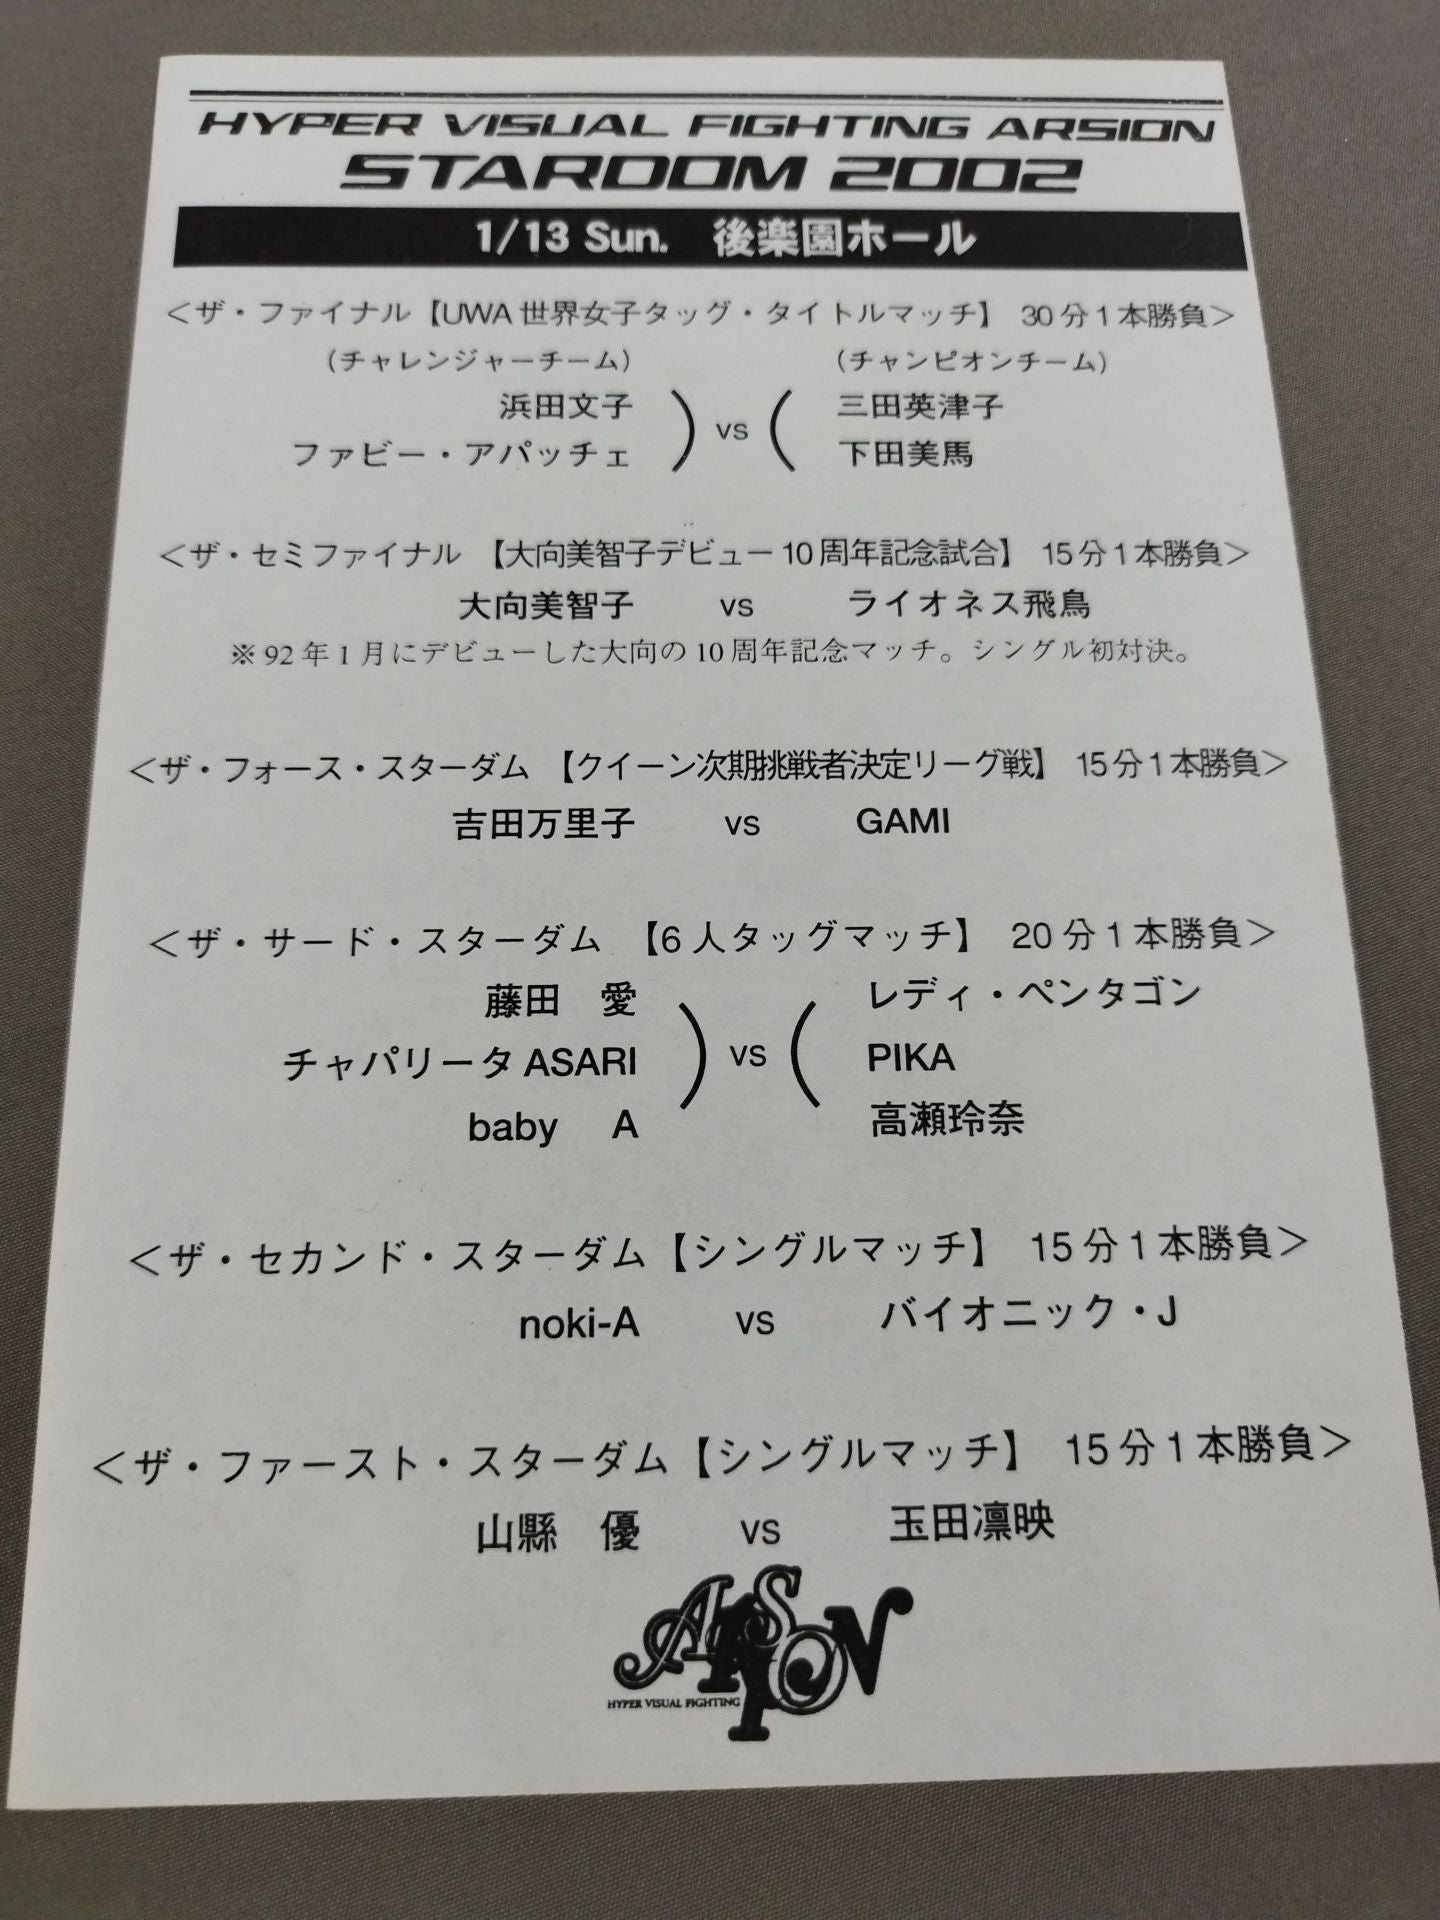 HYPER VISUAL FIGHTING ARSION
STARDOM 2002
1/13 Sun. 後楽園ホール
＜ザ・ファイナル【UWA世界女子タッグ・タイトルマッチ】 30分1本勝負＞
（チャレンジャーチーム） （チャンピオンチーム）
浜田文子 三田英津子
vs
ファビー・アパッチェ 下田美馬
＜ザ・セミファイナル 【大向美智子デビュー10周年記念試合】 15分1本勝負＞
大向美智子 vs ライオネス飛鳥
※92年1月にデビューした大向の10周年記念マッチ。シングル初対決。
＜ザ・フォース・スターダム 【クイーン次期挑戦者決定リーグ戦】 15分1本勝負＞
吉田万里子 vs GAMI
＜ザ・サード・スターダム 【6人タッグマッチ】 20分1本勝負＞
藤田 愛 レディ・ペンタゴン
チャパリータASARI vs PIKA
baby A 高瀬玲奈
＜ザ・セカンド・スターダム【シングルマッチ】 15分1本勝負＞
noki-A vs バイオニック・J
＜ザ・ファースト・スターダム【シングルマッチ】 15分1本勝負＞
山縣 優 vs 玉田凛映
ARSION
HYPER VISUAL FIGHTING